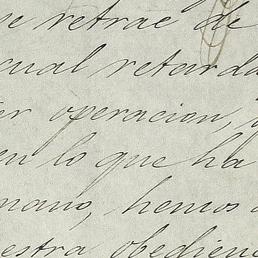 se retrae de
cual retarda
er operacion, y
en lo que ha
mano, hemos
estra obedienc